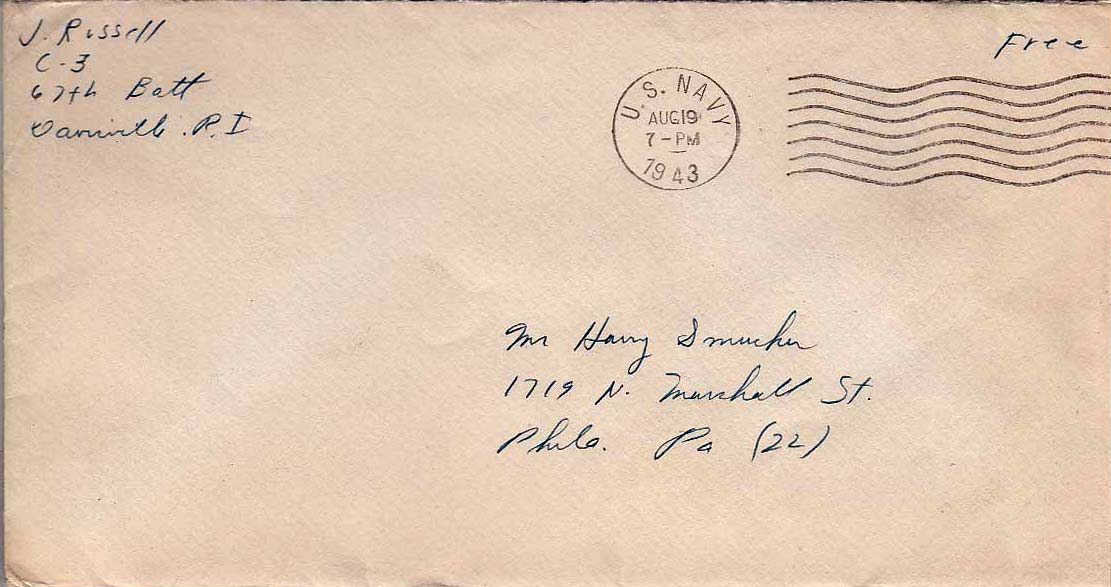 J. Russell
C-3
67th Batt
Davisville . R. I
Free
U.S. NAVY
AUG 19
7-PM
1943
Mr Harry Smucker
1719 N. Marshall St.
Phila. Pa (22)